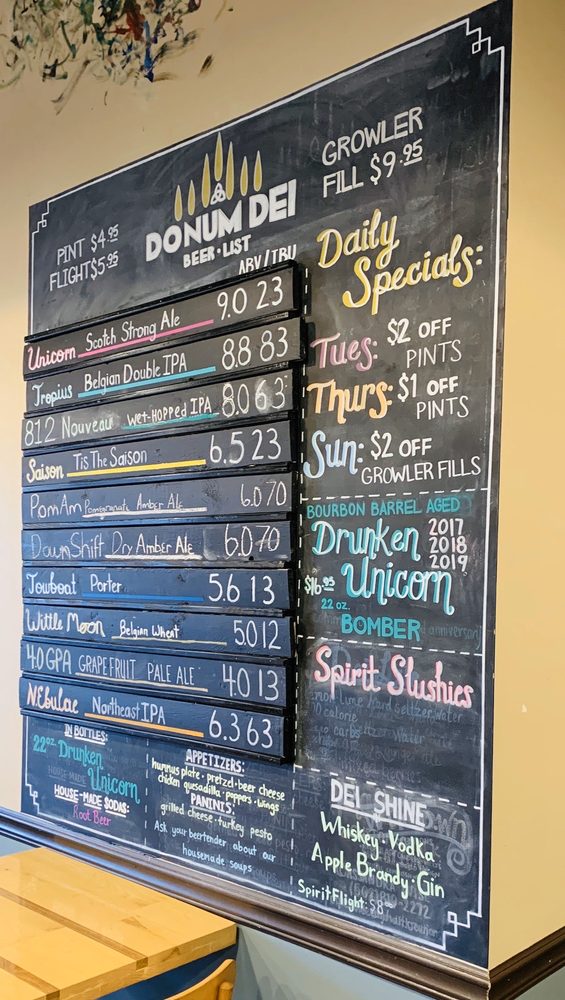 GROWLER
FILL $9.95
PINT $4.95
FLIGHT $5.95
DONUM DEI
BEER·LIST
ABV/IBU
Unicorn Scotch Strong Ale 9.0 23
Tropius Belgian Double IPA 8.8 83
812 Nouveau Wet-Hopped IPA 8.0 63
Saison Tis The Saison 6.5 23
PomAm Pomegranate Amber Ale 6.0 70
DownShift Dry Amber Ale 6.0 70
Towboat Porter 5.6 13
Wittle Moon Belgian Wheat 5.0 12
4.0GPA GRAPEFRUIT PALE ALE 4.0 13
NEbulae Northeast IPA 6.3 63
Daily
Specials:
Tues: $2 OFF
PINTS
Thurs: $1 OFF
PINTS
Sun: $2 OFF
GROWLER FILLS
BOURBON BARREL AGED
Drunken 2017
2018
2019
$16.95 Unicorn
22 oz.
BOMBER
Spirit Slushies
IN BOTTLES:
22oz. Drunken
Unicorn
HOUSE MADE
HOUSE-MADE SODAS:
Root Beer
APPETIZERS:
hummus plate·pretzel·beer cheese
chicken quesadilla·poppers·wings
PANINIS:
grilled cheese·turkey pesto
Ask your beertender about our
housemade soups
DEI SHINE
Whiskey·Vodka
Apple Brandy·Gin
Spirit Flight: $8